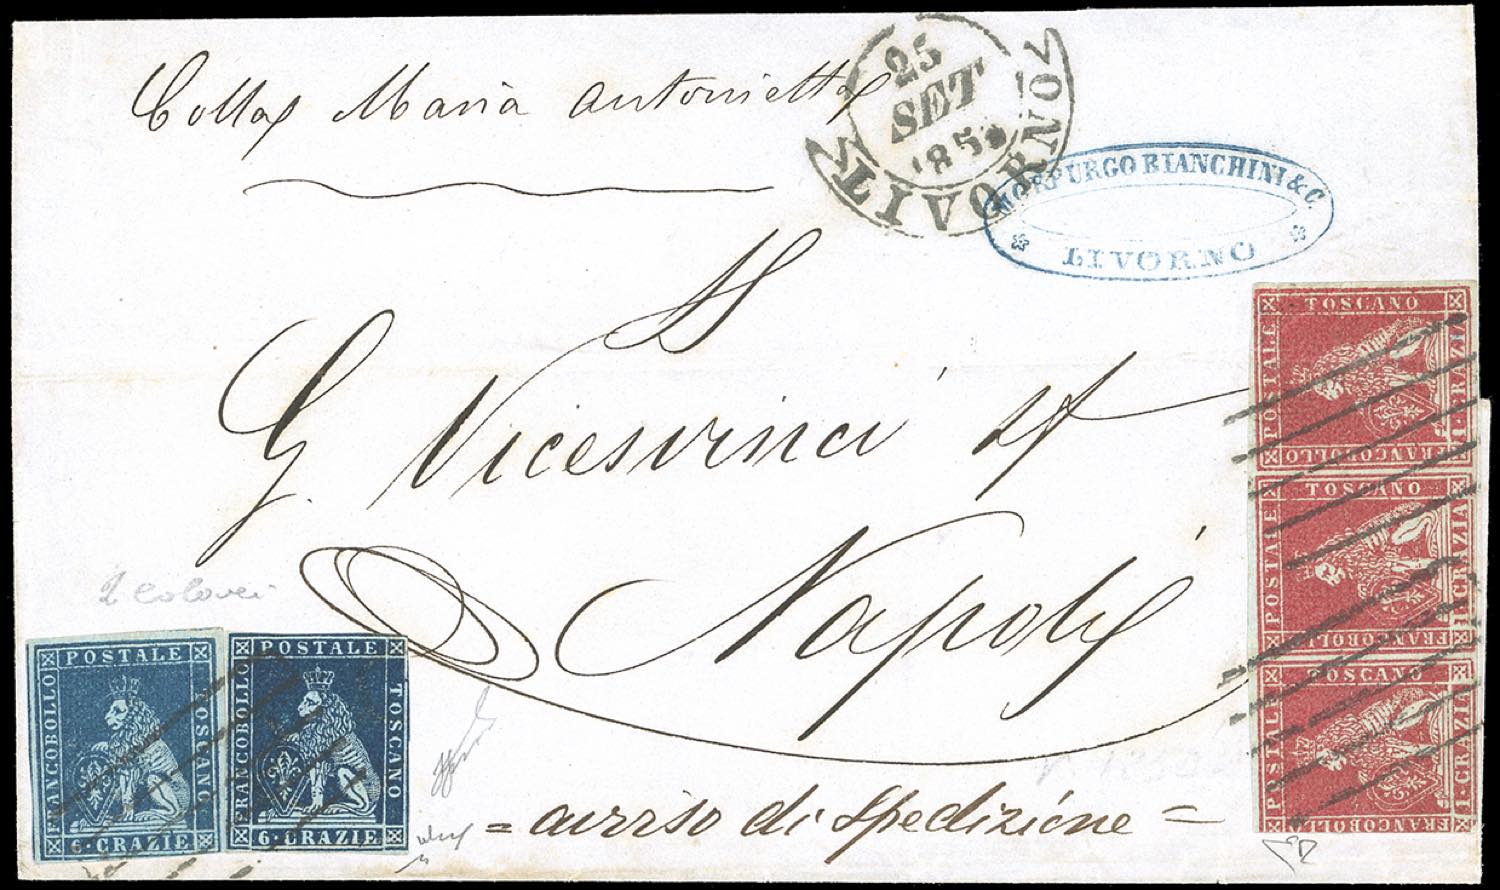 Colla Maria Antonietta
25
SET
185
LIVORNO
MORPURGO BIANCHINI & C.
LIVORNO
G. Vicesvinci
Napoli
2 colori
= avviso di Spedizione =
POSTALE
FRANCOBOLLO
TOSCANO
6·CRAZIE
POSTALE
FRANCOBOLLO
TOSCANO
6·CRAZIE
TOSCANO
POSTALE
1·CRAZIA
FRANCOBOLLO
TOSCANO
POSTALE
1·CRAZIA
FRANCOBOLLO
TOSCANO
POSTALE
1·CRAZIA
FRANCOBOLLO